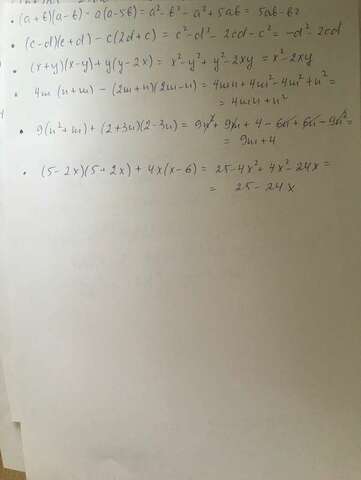 (a+b)(a-b) - a(a-5b) = a² - b² - a² + 5ab = 5ab - b²
(c-d)(c+d) - c(2d+c) = c² - d² - 2cd - c² = -d² - 2cd
(x+y)(x-y) + y(y-2x) = x² - y² + y² - 2xy = x² - 2xy
4m (n+m) - (2m+n)(2m-n) = 4mn + 4m² - 4m² + n² =
= 4mn + n²
9(n²+m) + (2+3n)(2-3n) = 9n² + 9m + 4 - 6n + 6n - 9n² =
= 9m + 4
(5-2x)(5+2x) + 4x(x-6) = 25 - 4x² + 4x² - 24x =
= 25 - 24x